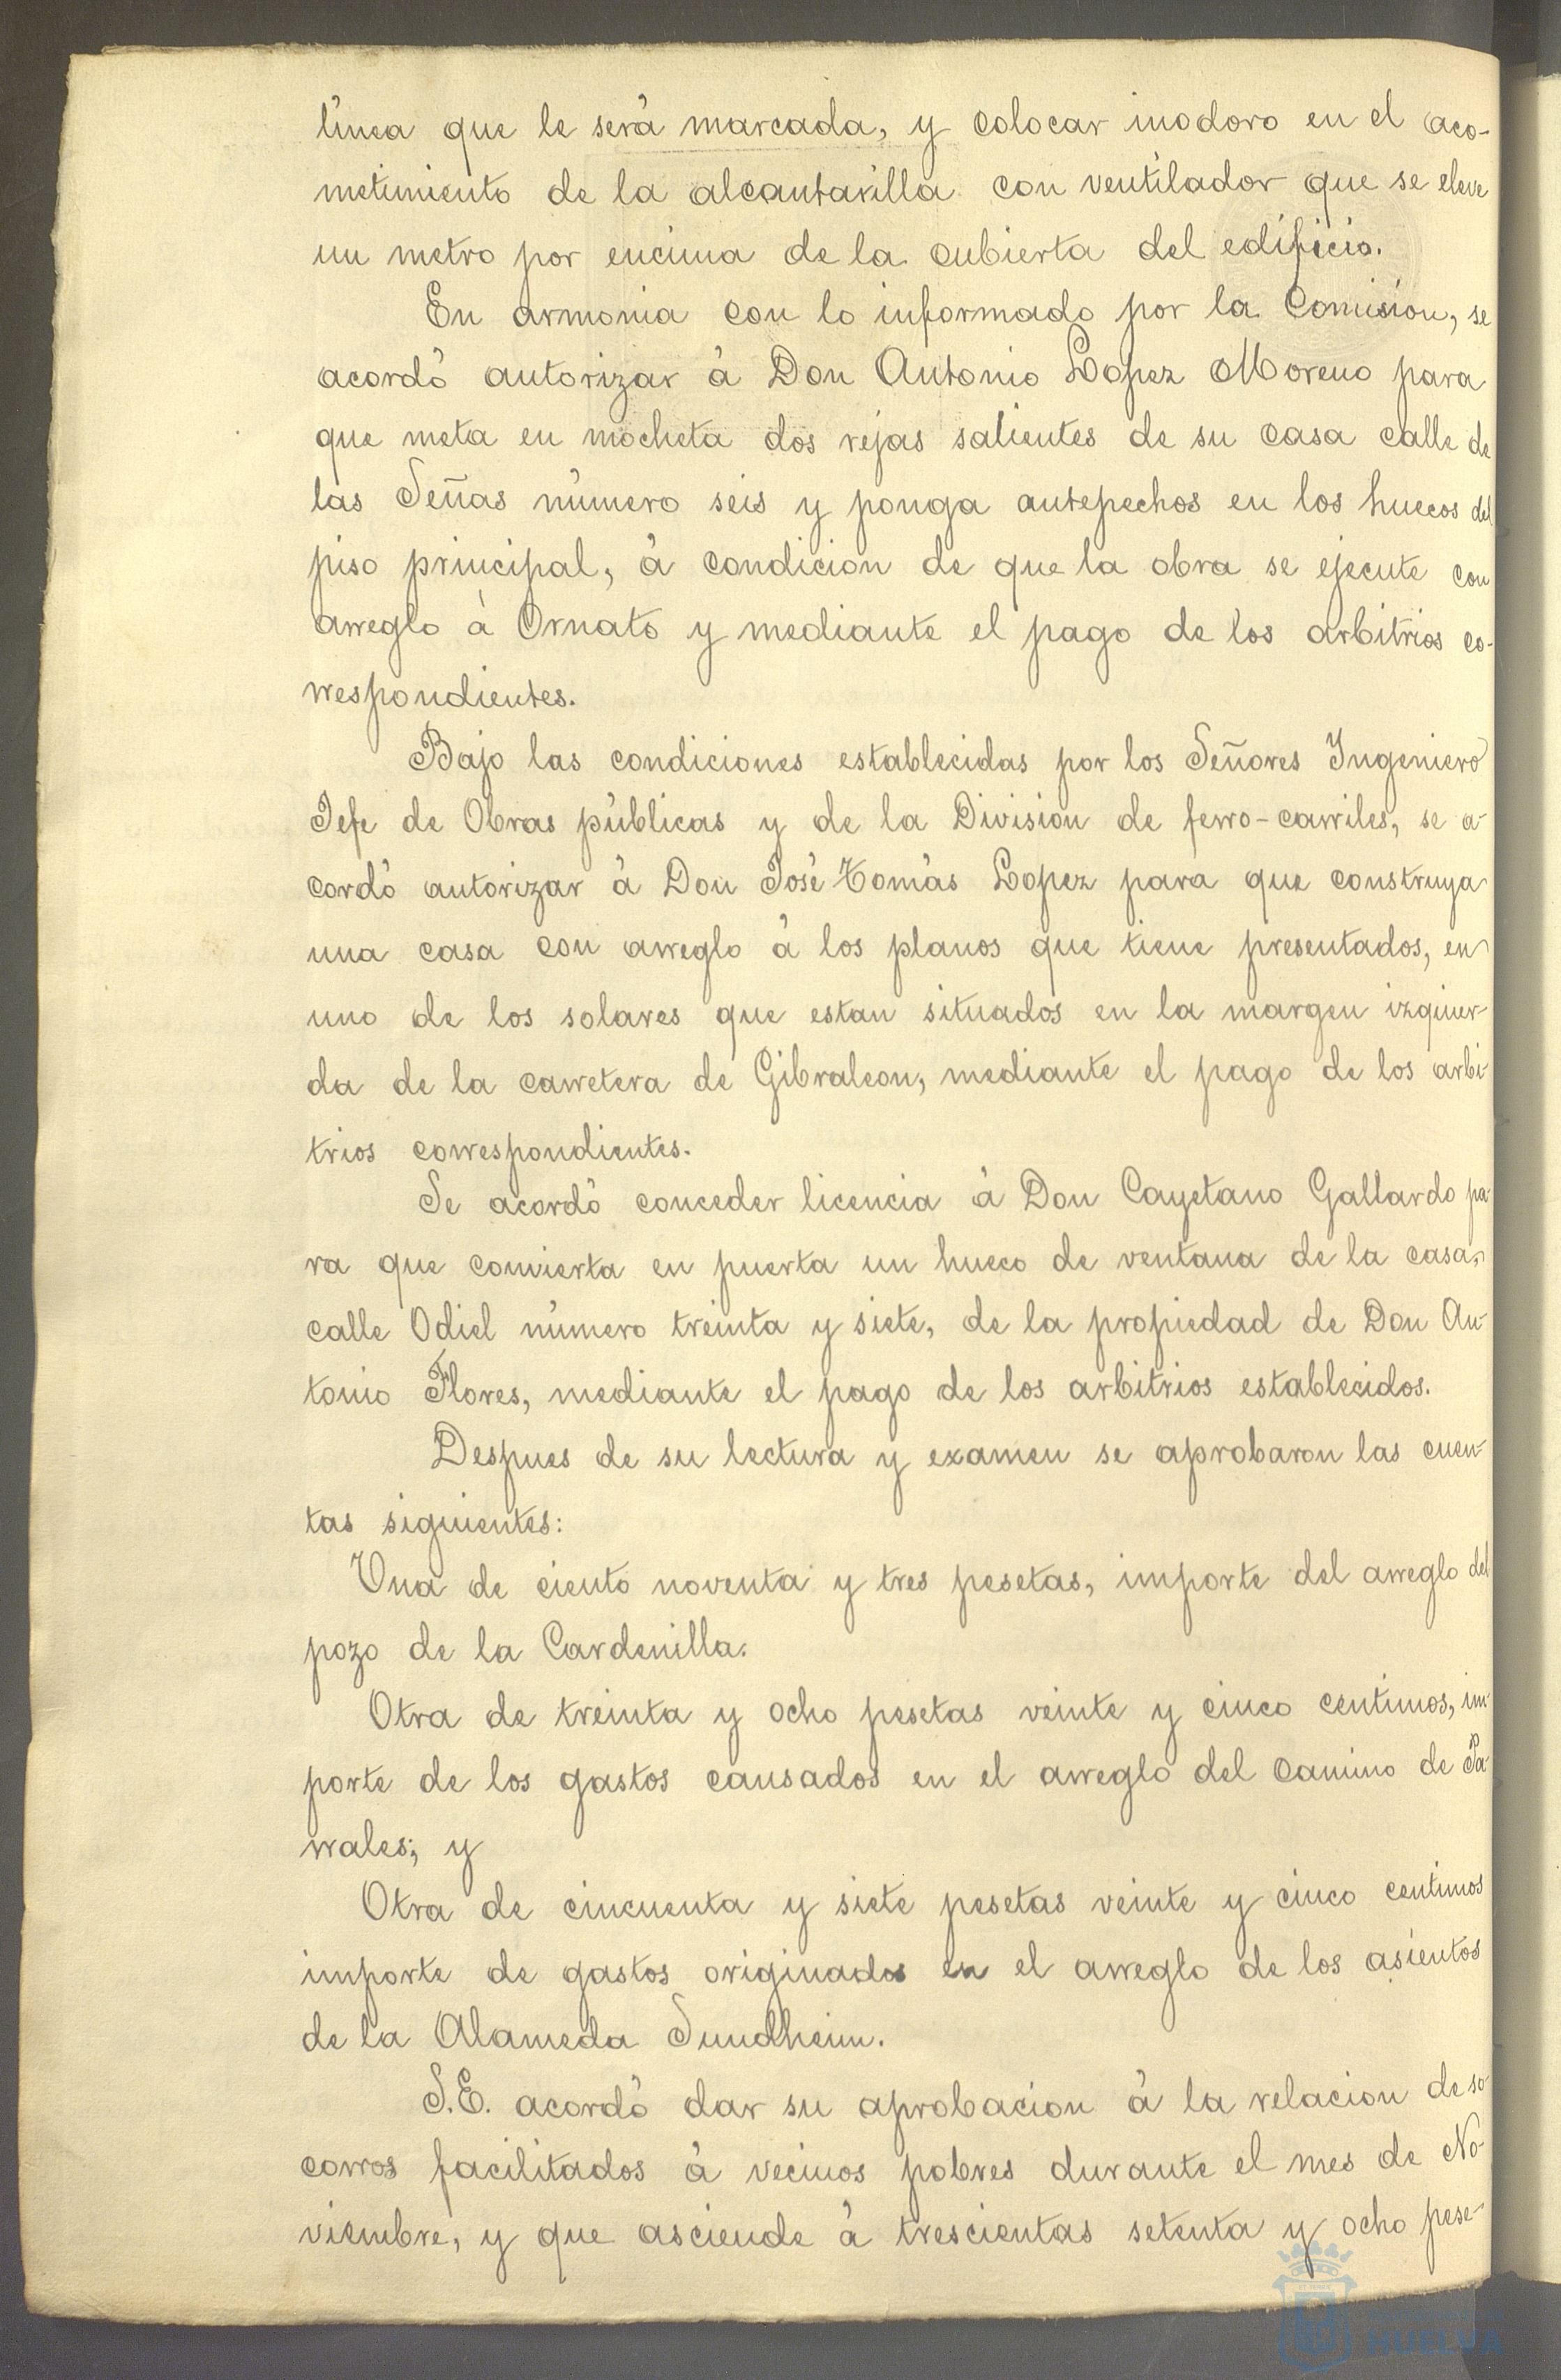 línea que le será marcada, y colocar inodoro en el aco-
metimiento de la alcantarilla con ventilador que se eleve
un metro por encima de la cubierta del edificio.
En armonia con lo informado por la Comision, se
acordó autorizar á Don Antonio Lopez Moreno para
que meta en mocheta dos rejas salientes de su casa calle de
las Señas número seis y ponga antepechos en los huecos del
piso principal, á condicion de que la obra se ejecute con
arreglo á Ornato y mediante el pago de los arbitrios co-
rrespondientes.
Bajo las condiciones establecidas por los Señores Ingeniero
Jefe de Obras públicas y de la Division de ferro-carriles, se a-
cordó autorizar á Don José Tomás Lopez para que construya
una casa con arreglo á los planos que tiene presentados, en
uno de los solares que estan situados en la margen izquier-
da de la carretera de Gibraleon, mediante el pago de los arbi-
trios correspondientes.
Se acordó conceder licencia á Don Cayetano Gallardo pa-
ra que convierta en puerta un hueco de ventana de la casa,
calle Odiel número treinta y siete, de la propiedad de Don An-
tonio Flores, mediante el pago de los arbitrios establecidos.
Despues de su lectura y examen se aprobaron las cuen-
tas siguientes:
Una de ciento noventa y tres pesetas, importe del arreglo del
pozo de la Cardenilla.
Otra de treinta y ocho pesetas veinte y cinco centimos, im-
porte de los gastos causados en el arreglo del camino de Pa-
rrales; y
Otra de cincuenta y siete pesetas veinte y cinco centimos
importe de gastos originados en el arreglo de los asientos
de la Alameda Sundheim.
S.E. acordó dar su aprobacion á la relacion de so-
corros facilitados á vecinos pobres durante el mes de No-
viembre, y que asciende á trescientas setenta y ocho pese-
HUELVA